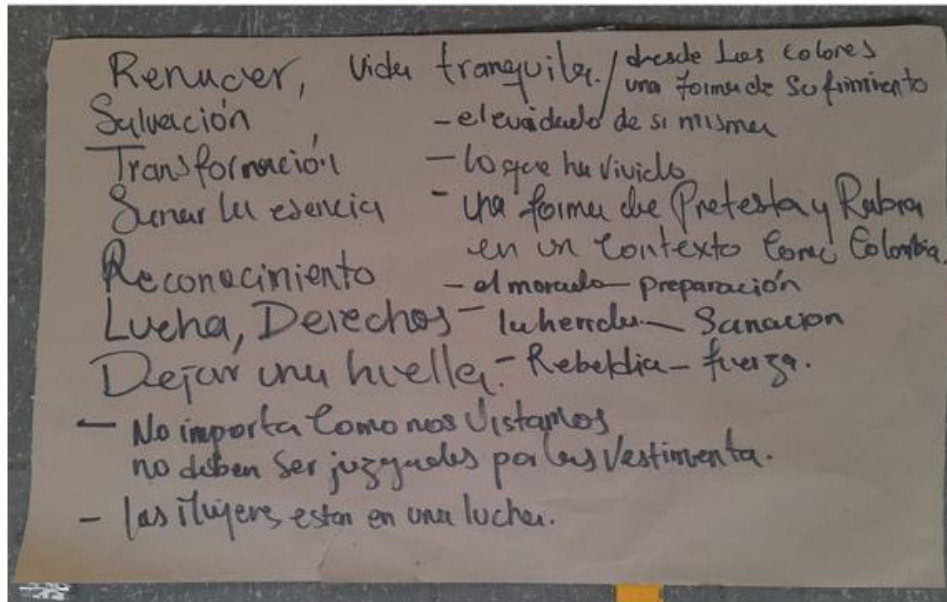 Renacer, vida tranquila. / desde los colores
una forma de sufrimiento
Salvación - el cuidado de si misma
Transformación - lo que ha vivido
Sanar la esencia - una forma de Protesta y Rabia
en un contexto como Colombia.
Reconocimiento - el morado - preparación
Lucha, Derechos - la herida - Sanacion
Dejar una huella. - Rebeldia - fuerza.
- No importa como nos vistamos
no deben ser juzgadas por las vestimenta.
- las Mujeres estan en una lucha.